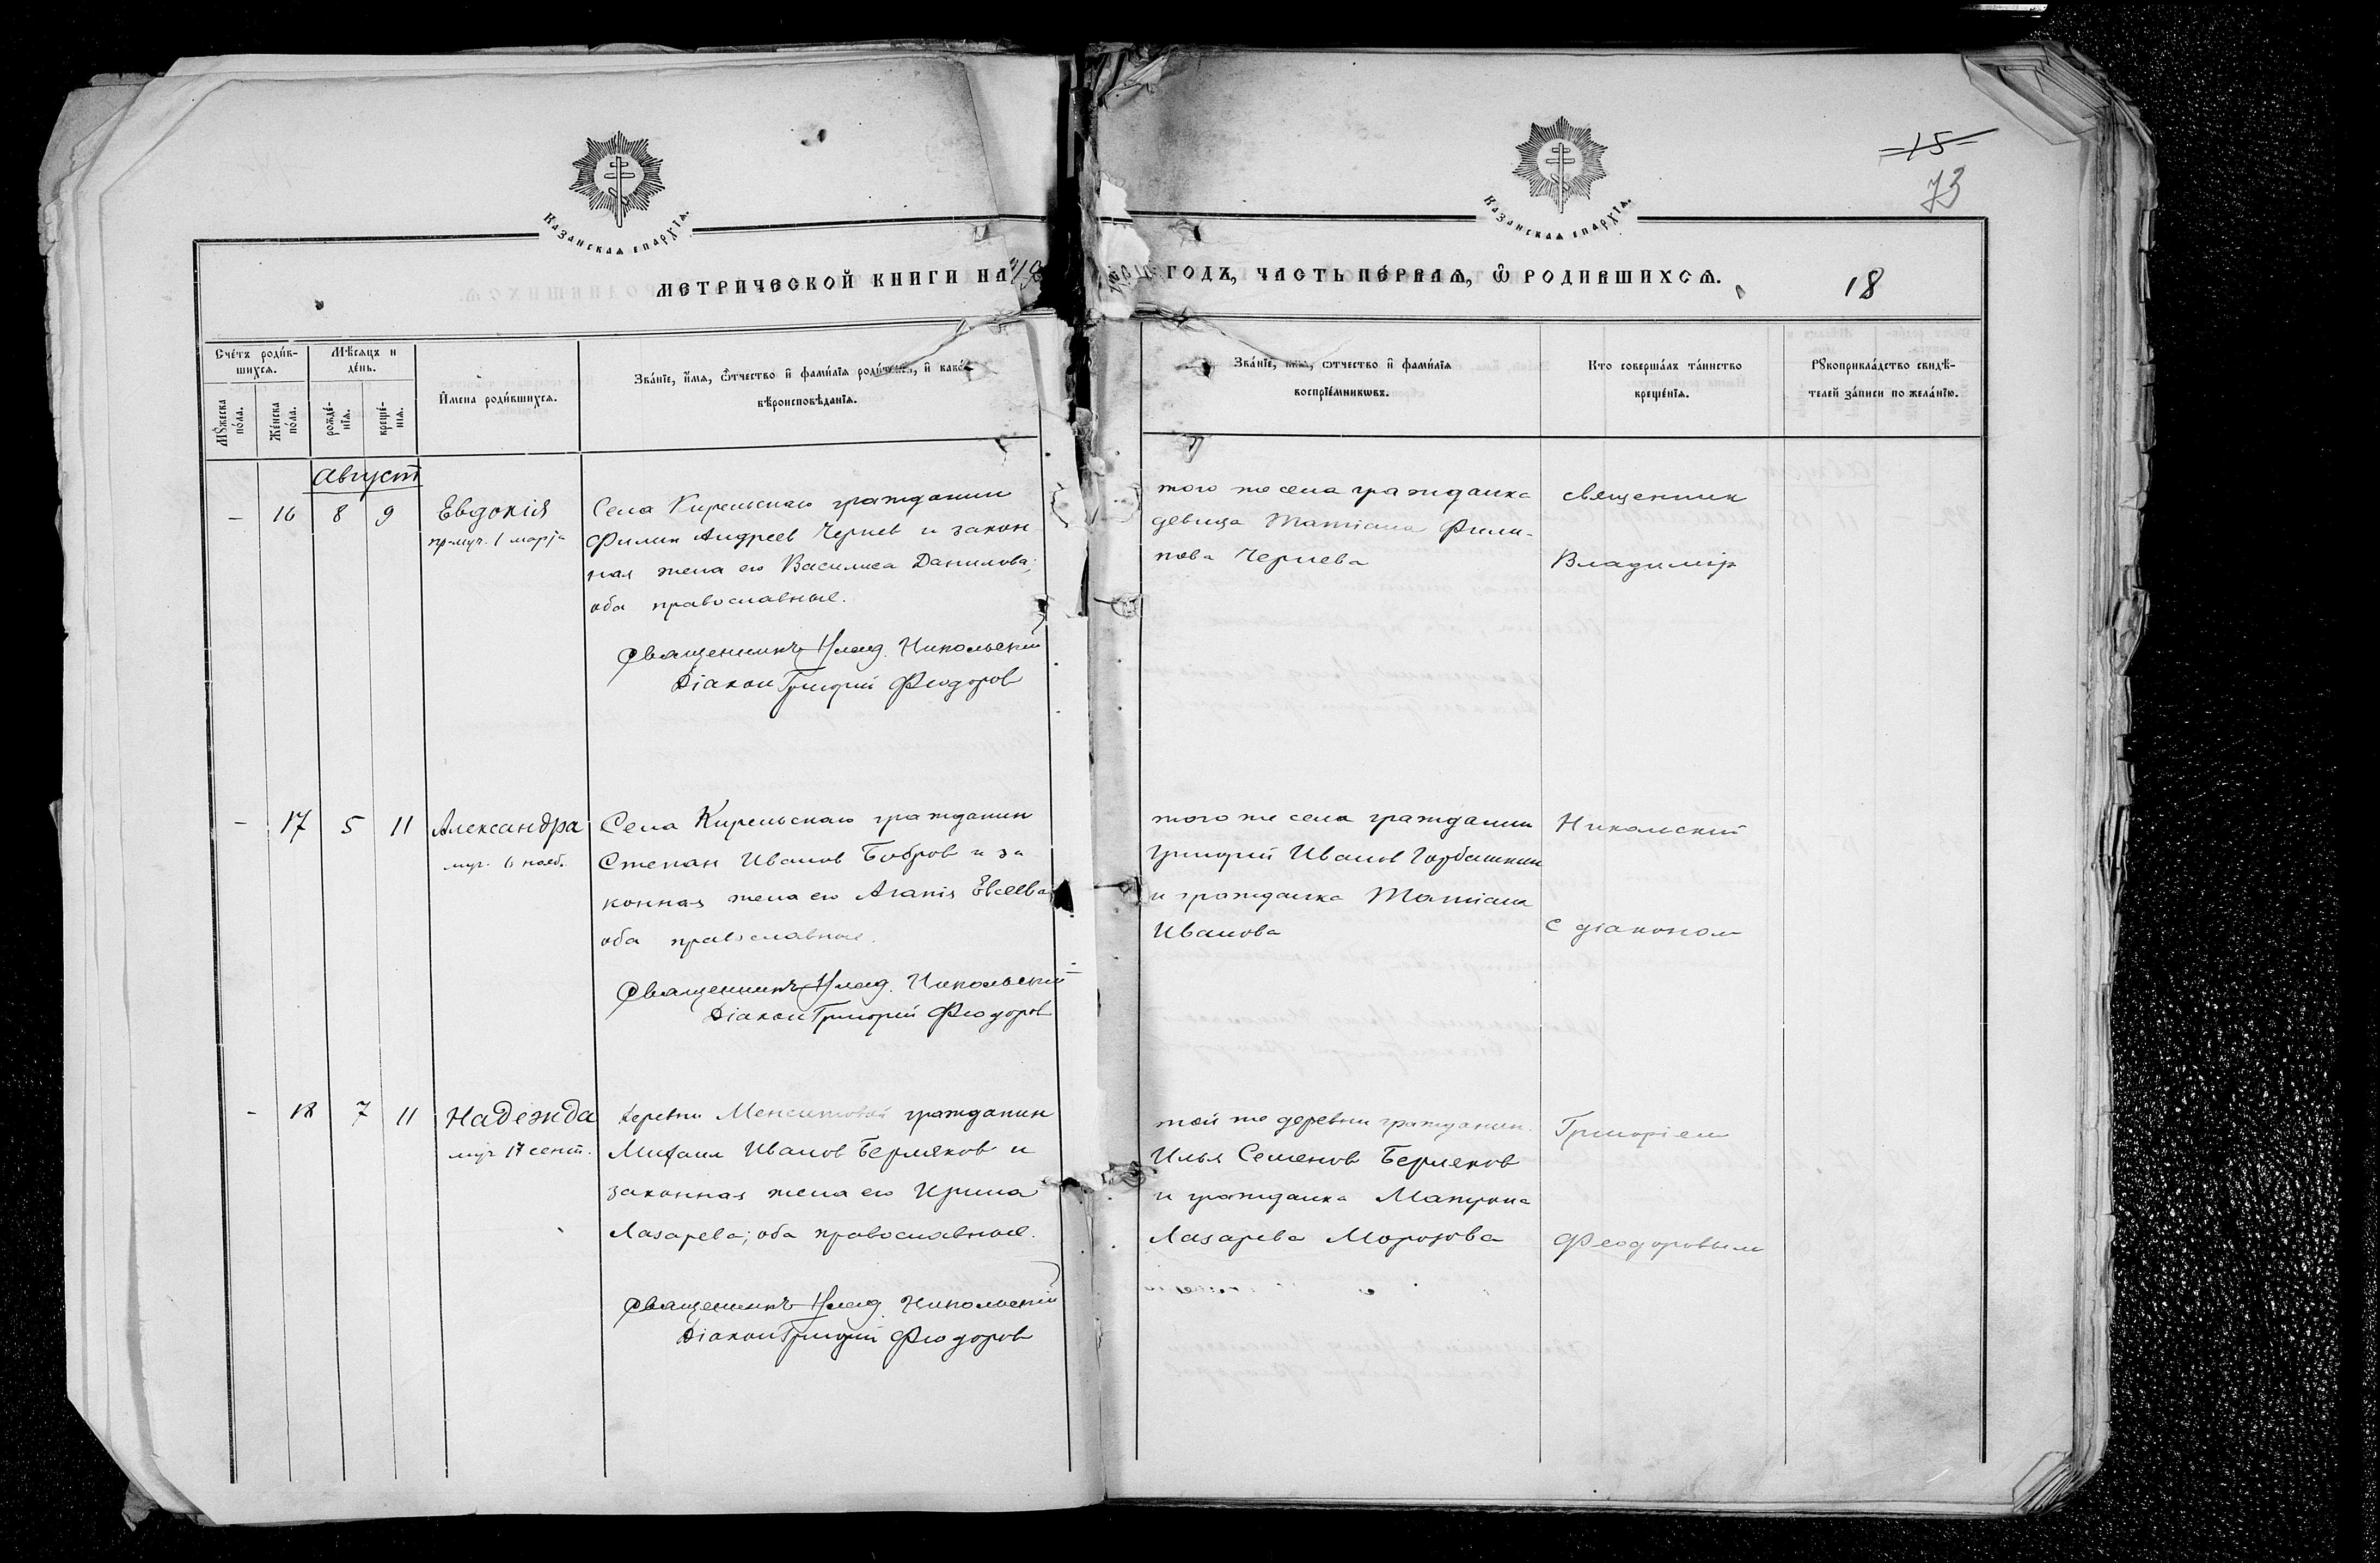 15
73
КАЗАНСКАЯ ЕПАРХІЯ.
КАЗАНСКАЯ ЕПАРХІЯ.
МЕТРИЧЕСКОЙ КНИГИ НА 19
ГОДЪ, ЧАСТЬ ПЕ́РВАѦ, Ѽ РОДИВШИХСѦ.
18
Сче́тъ роди́в-
шихсѧ.
Мѣ́сяцъ и
де́нь.
Мꙋ́жеска
по́ла.
Же́нска
по́ла.
рожде́-
нїѧ.
креще́-
нїѧ.
И҆мена роди́вшихсѧ.
Зва́нїе, и҆́мѧ, ѻ҆́тчество и҆ фами́лїѧ роди́телей, и҆ како́-
вѣроисповѣ́данїѧ.
Зва́нїе, и҆мѧ, ѻ҆тчество и҆ фами́лїѧ
воспрїе́мникѡвъ.
Кто соверша́лъ та́инство
креще́нїѧ.
Рꙋкоприкла́дство свидѣ́-
телей за́писи по жела́нїю.
Август
– 16 8 9 Евдокія
пр-муч. 1 марта
Села Кирельскаго гражданин
Филип Андреев Черне́в и закон
ная жена его Василиса Данилова;
оба православные.
Священникъ Влад. Никольскій
Діакон Григорій Феодоров
того же села гражданка
девица Татіана Фили-
пова Чернева
священник
Владимір
– 17 5 11 Александра
муч. 6 нояб.
Села Кирельскаго гражданин
Степан Иванов Бобров и за
конная жена его Агапія Евсеева
оба православные.
Священникъ Влад. Никольскій
Діакон Григорій Феодоров
того же села гражданин
Григорий Иванов Горбашкин
и гражданка Татіана
Иванова
Никольскій
с діаконом
– 18 7 11 Надежда
муч 17 сент.
деревни Менситовой гражданин
Михаил Иванов Берляков и
законная жена его Ирина
Лазарева; оба православные.
Священникъ Влад. Никольскій
Діакон Григорій Феодоров
той же деревни гражданин
Илья Семенов Берляков
и гражданка Матрона
Лазарева Морозова
Григоріем
Феодоровым